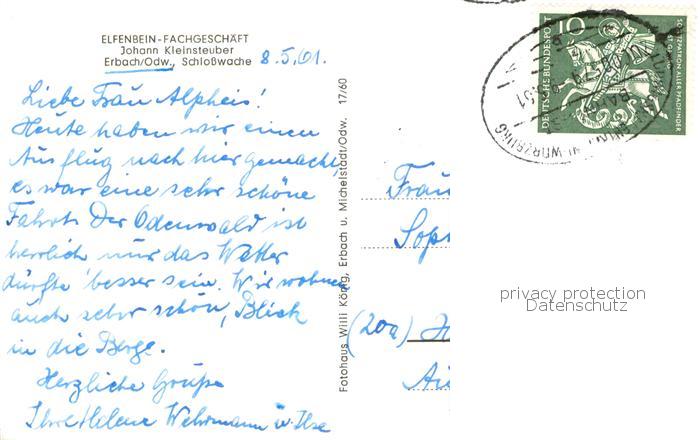 ELFENBEIN-FACHGESCHÄFT
Johann Kleinsteuber
Erbach/Odw., Schloßwache
8.5.61.
Liebe Frau Alpheis!
Heute haben wir einen
Ausflug nach hier gemacht,
es war eine sehr schöne
Fahrt. Der Odenwald ist
herrlich nur das Wetter
dürfte besser sein. Wir wohnen
auch sehr schön, Blick
in die Berge.
Herzliche Grüße
Ihre Helene Wehrmann u. Ilse
Fotohaus Willi König, Erbach u. Michelstadt/Odw. 17/60
Frau
Soph
(20a)
10
DEUTSCHE BUNDESPOST
SCHUTZPATRON ALLER PFADFINDER
ST. GEORG
WÜRZBURG
BAHNPOST
privacy protection
Datenschutz